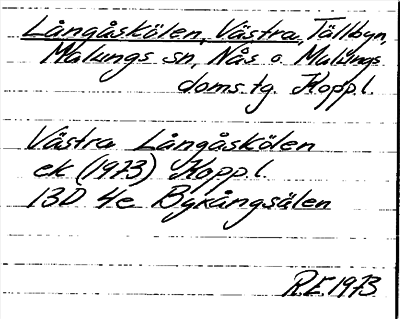 Långåskölen, Västra, Tällbyn,
Malungs sn, Nås o. Malungs
doms.tg. Kopp.l.
Västra Långåskölen
ek (1973) Kopp.l.
13D 4e Byrångsälen
R.E. 1973.